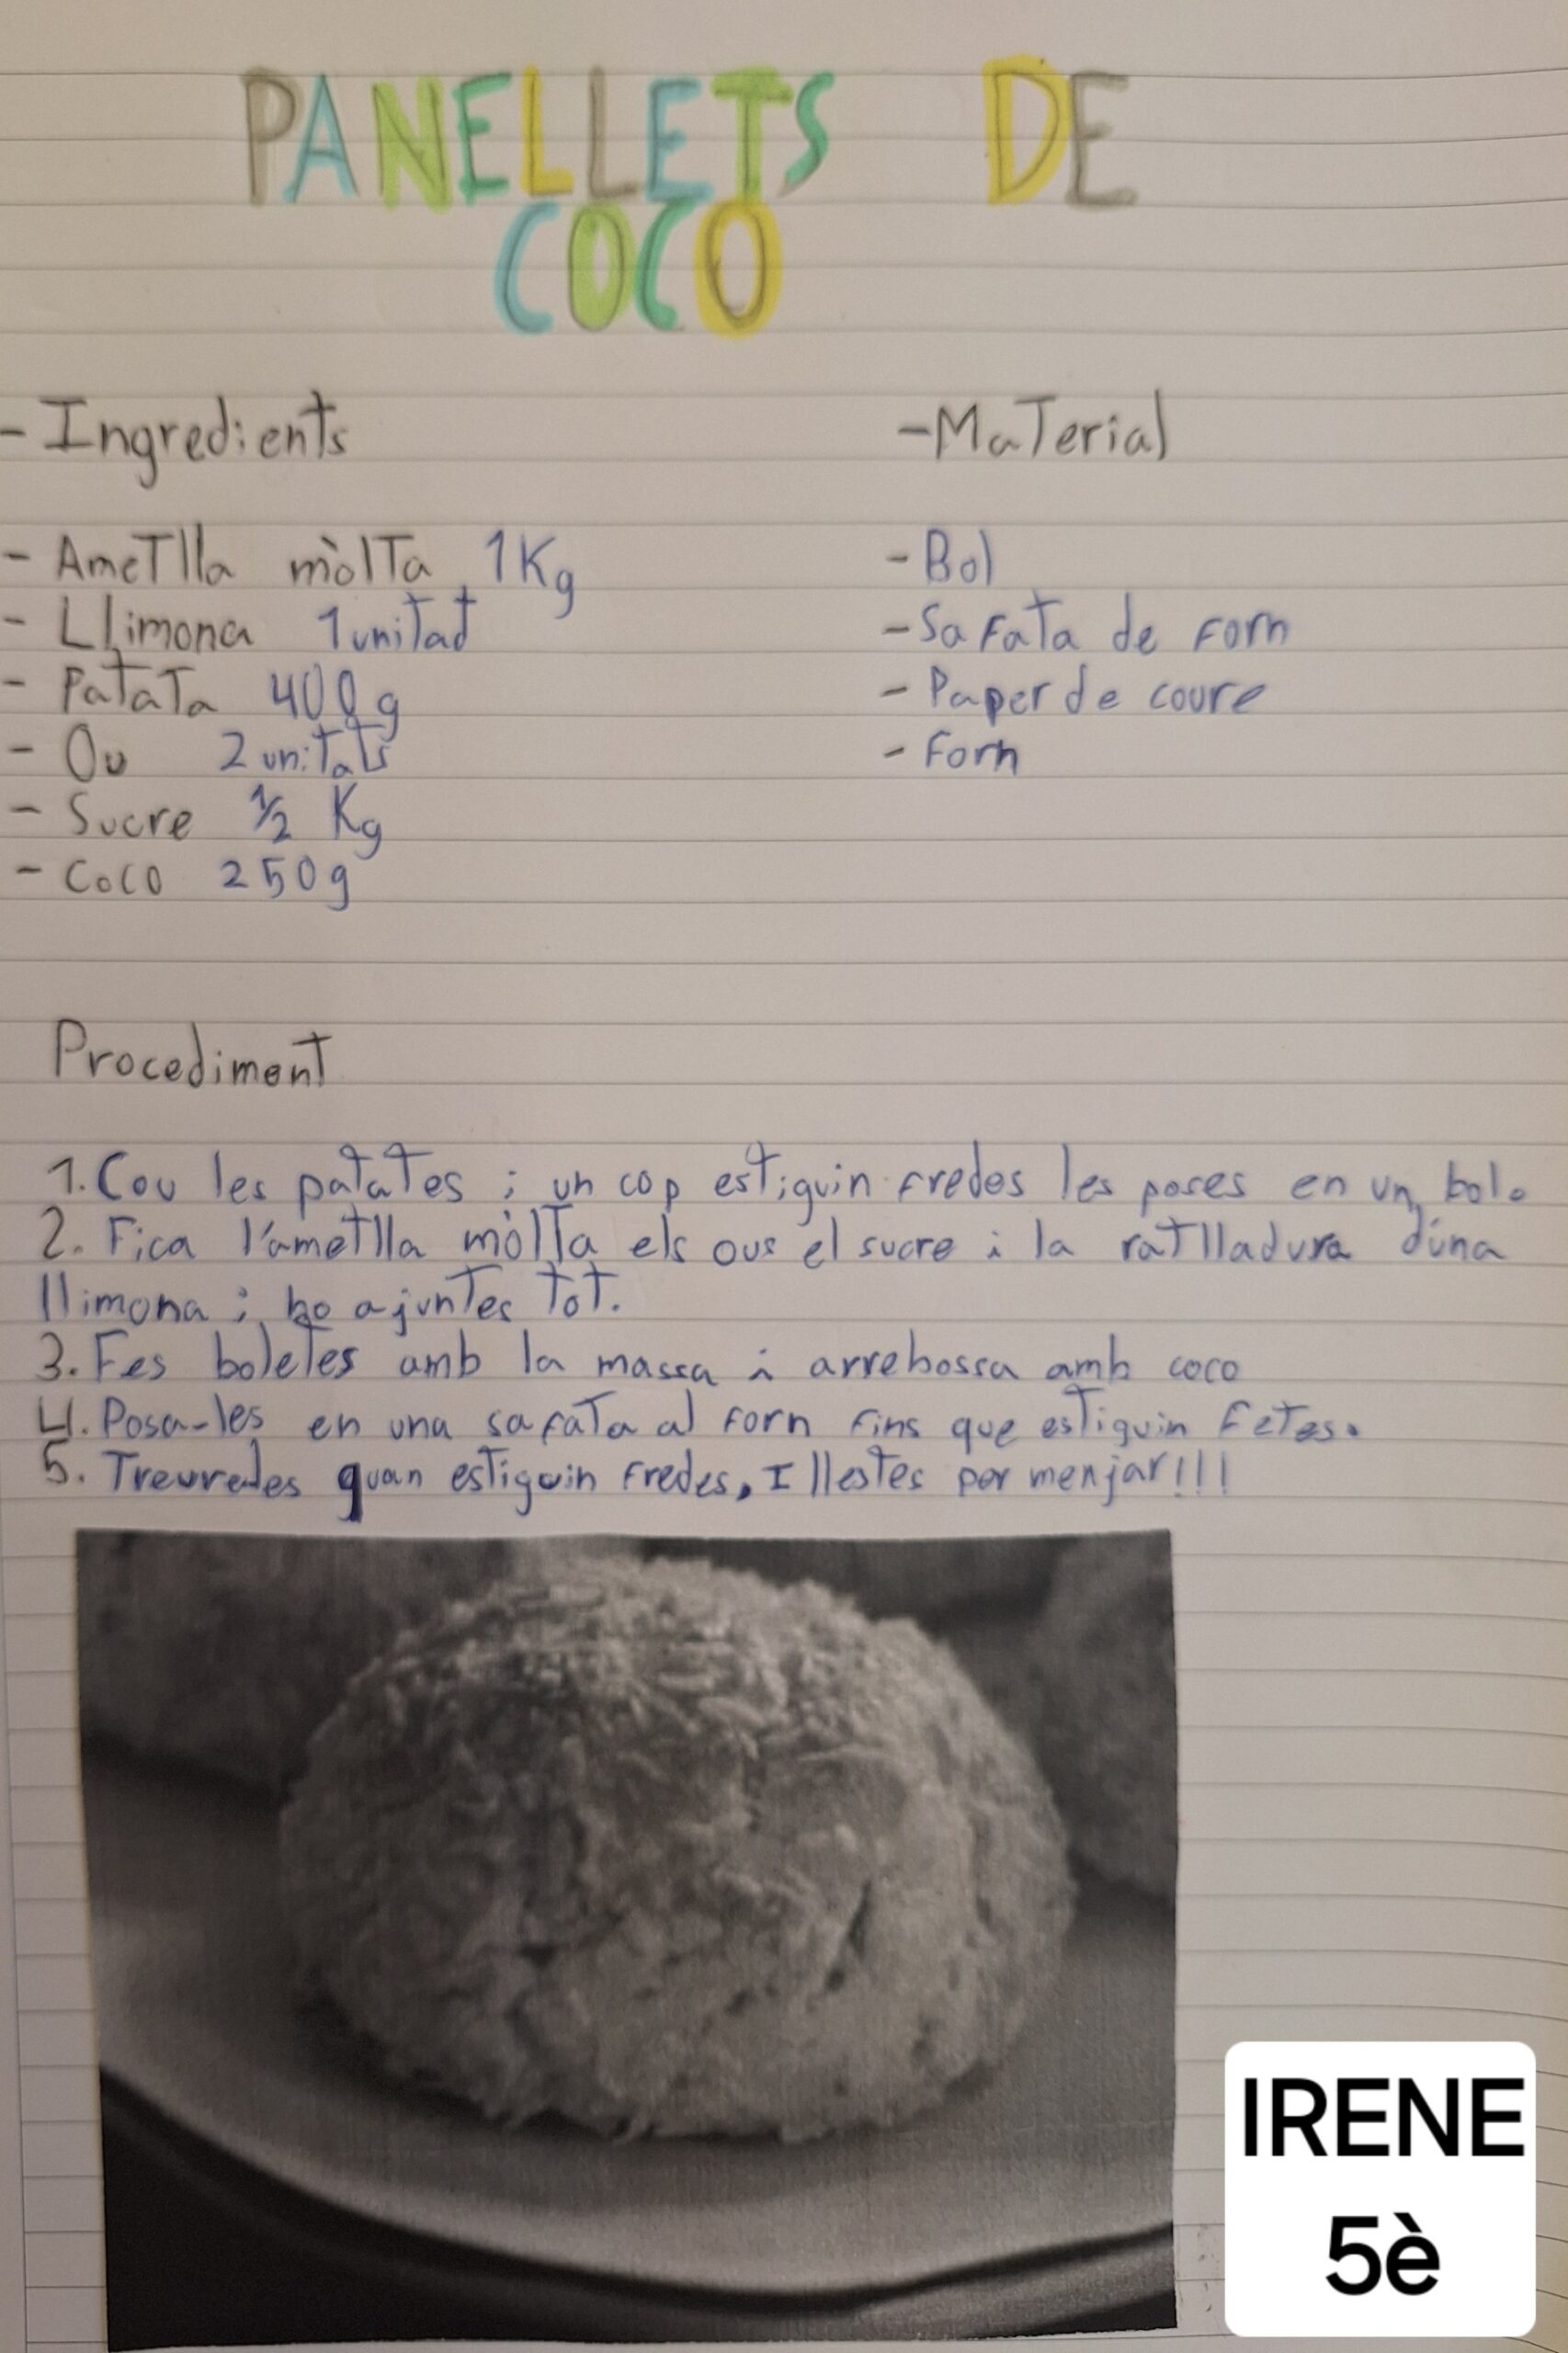 PANELLETS DE
COCO
- Ingredients
- Ametlla mòlta 1Kg
- Llimona 1 unitat
- Patata 400 g
- Ou 2 unitats
- Sucre 1/2 Kg
- Coco 250g
- Material
- Bol
- Safata de forn
- Paper de coure
- Forn
Procediment
1. Cou les patates i un cop estiguin fredes les poses en un bol.
2. Fica l'ametlla mòlta els ous el sucre i la ratlladura d'una
llimona i ho ajuntes tot.
3. Fes boletes amb la massa i arrebossa amb coco
4. Posa-les en una safata al forn fins que estiguin fetes.
5. Treureles quan estiguin fredes, I llestes per menjar!!!
IRENE
5è